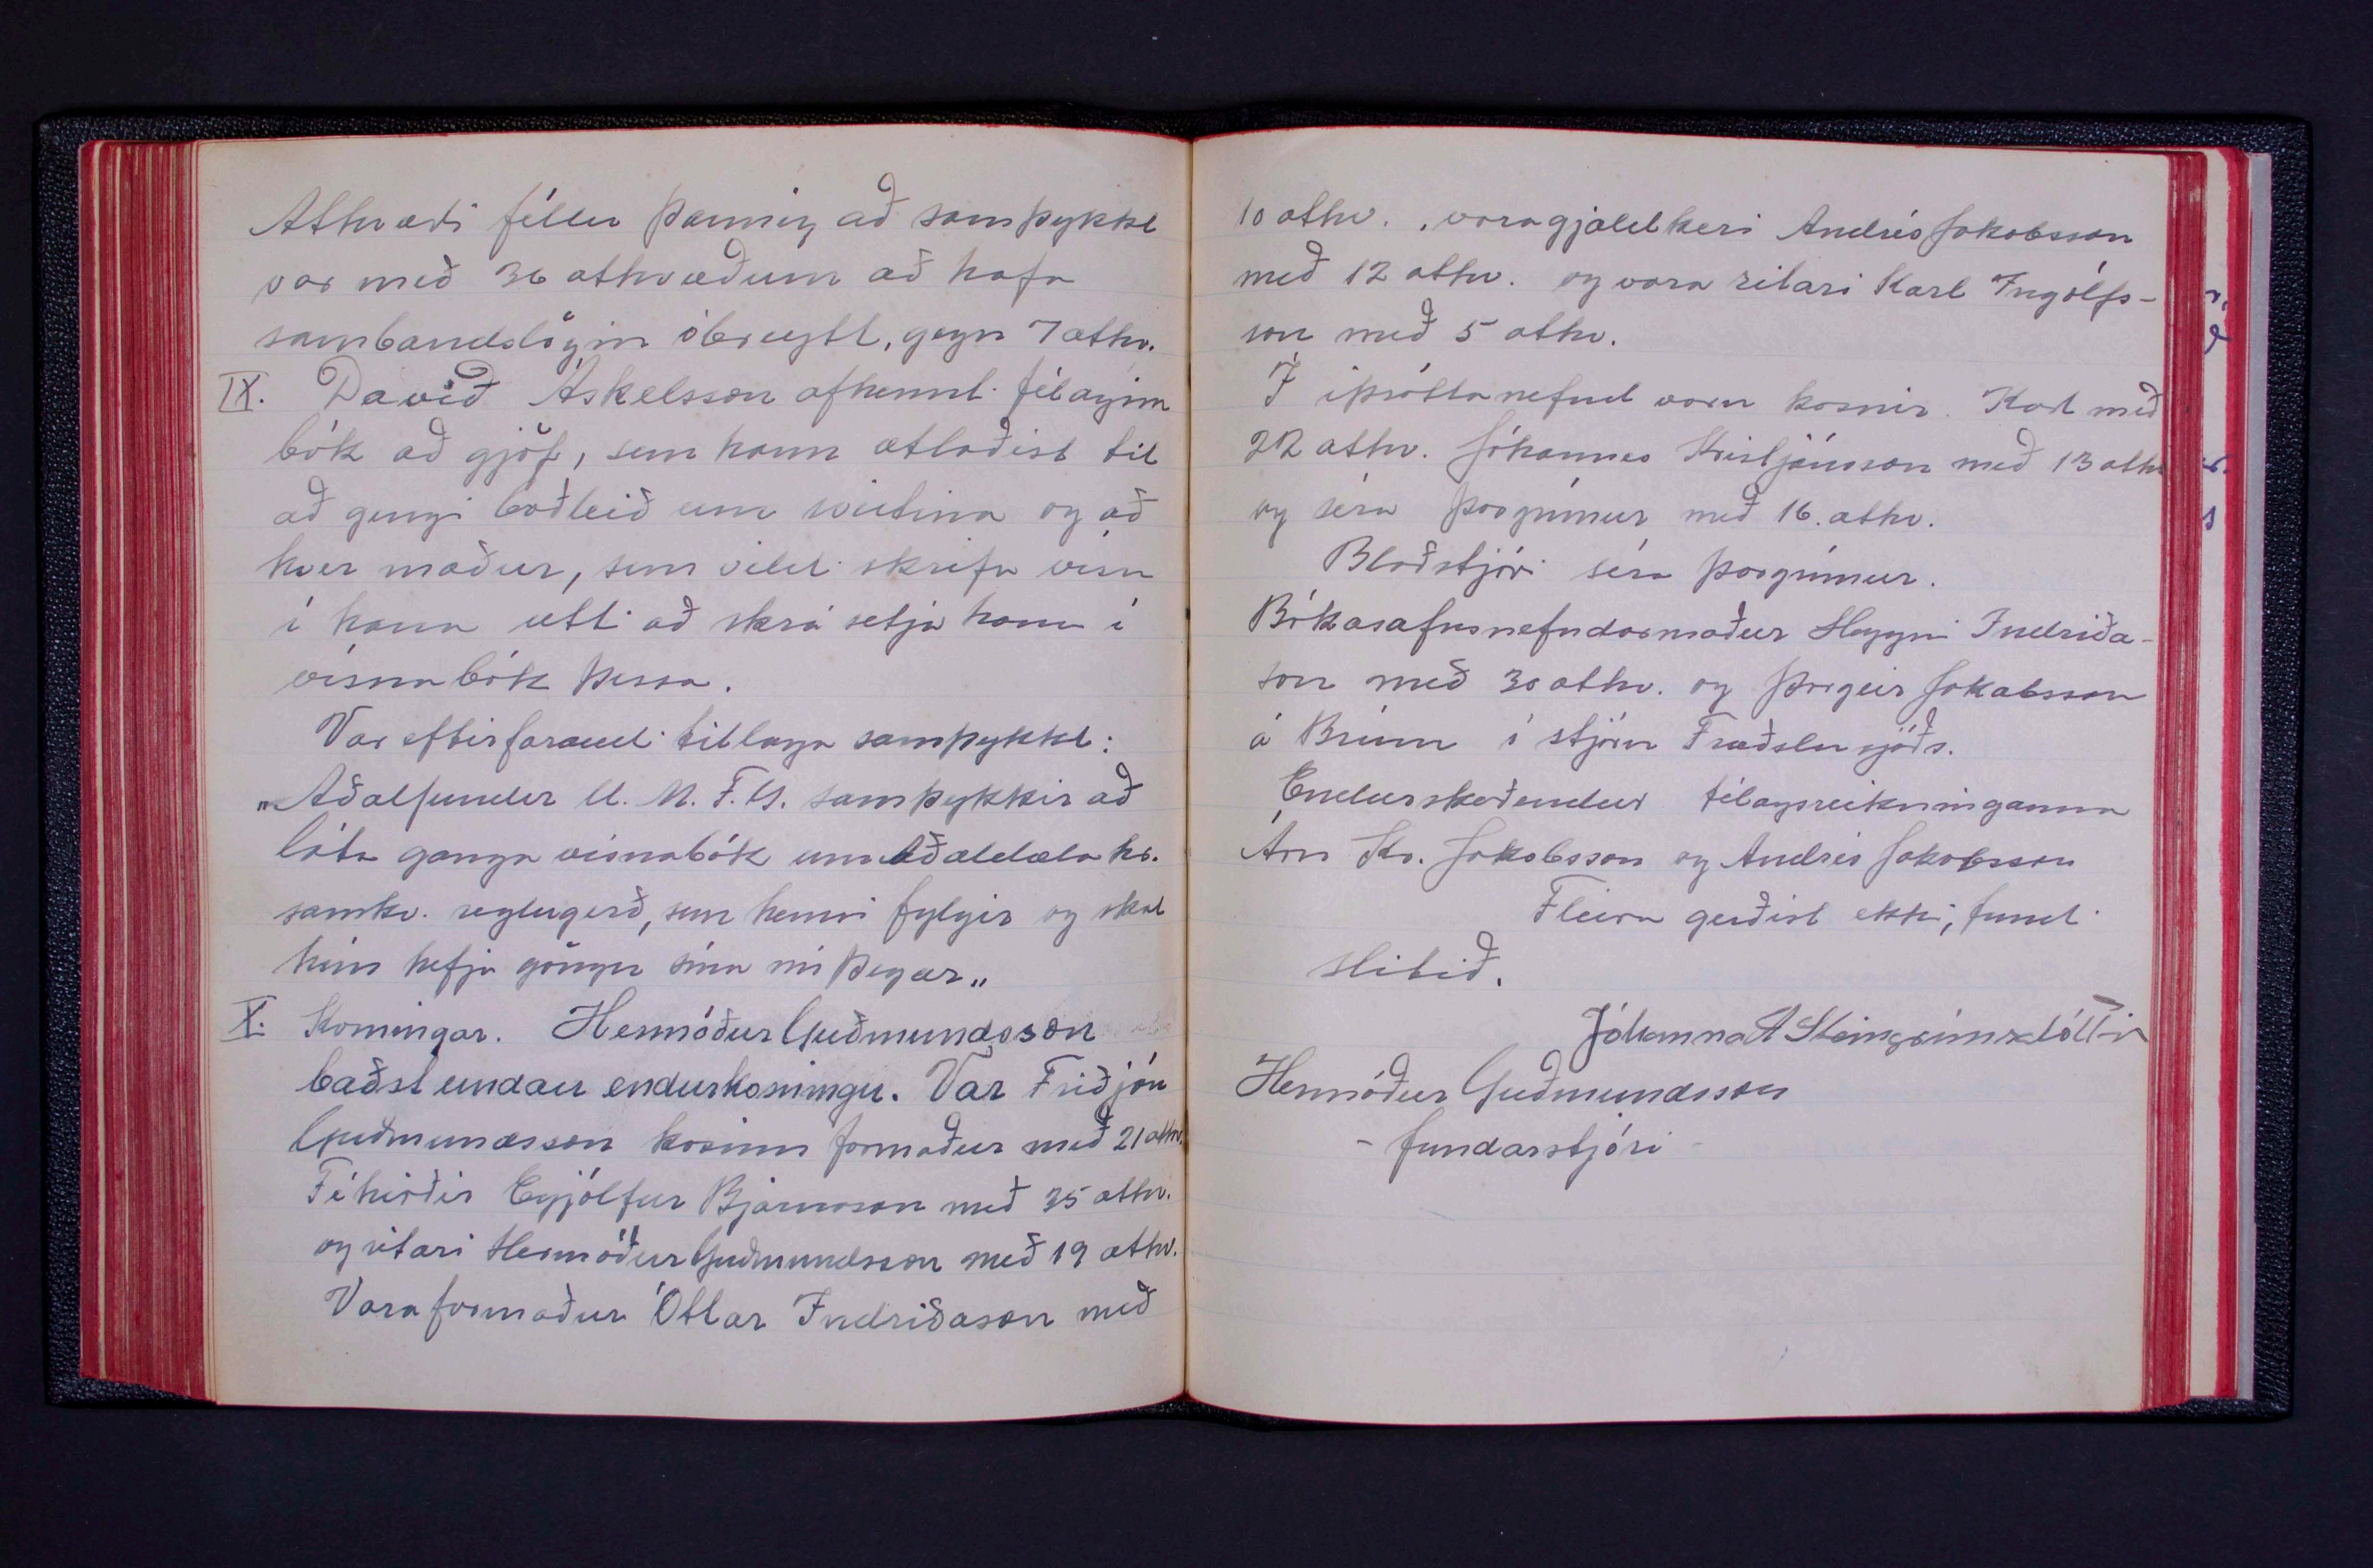 Atkvæði féllu þannig að samþykkt
var með 36 atkvæðum að hafa
sambandslögin óbreytt, gegn 7 atkv.
IX. Davíð Áskelsson afhenti félaginu
bók að gjöf, sem hann ætlaðist til
að gengi boðleið um sveitina og að
hver maður, sem vildi skrifa vísu
í hana ætti að skrá setja hana í
vísnabók þessa.
Var eftirfarandi tillaga samþykkt:
„Aðalfundur U. M. F. G. samþykkir að
láta ganga vísnabók um Aðaldæla hr.
samkv. reglugerð, sem henni fylgir og skal
hún hefja göngu sína nú þegar„
X. Kosningar. Hermóður Guðmundsson
baðst undan endurkosningu. Var Friðjón
Guðmundsson kosinn formaður með 21 atkv.
Féhirðir Eyjólfur Bjarnason með 35 atkv.
og ritari Hermóður Guðmundsson með 19 atkv.
Vara formaður Óttar Indriðason með
10 atkv. , varagjaldkeri Andrés Jakobsson
með 12 atkv. og vara ritari Karl Ingólfs-
son með 5 atkv.
Í íþróttanefnd voru kosnir. Karl með
22 atkv. Jóhannes Kristjánsson með 13 atkv
og séra Þorgrímur með 16. atkv.
Blaðstjóri séra Þorgrímur.
Bókasafnsnefndarmaður Höggni Indriða-
son með 30 atkv. og Þorgeir Jakobsson
á Brúum í stjórn Fræðslu sjóðs.
Endurskoðendur félagsreikninganna
Árni Kr. Jakobsson og Andrés Jakobsson
Fleira gerðist ekki, fundi
slitið.
Jóhanna A Steingrímsdóttir
Hermóður Guðmundsson
- fundarstjóri -